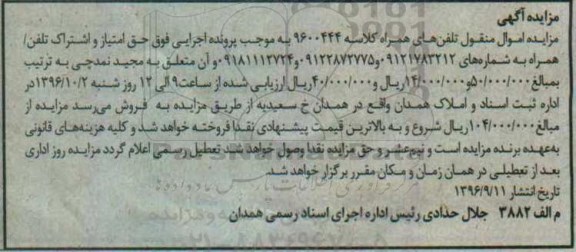 مزایده آگهی
مزایده اموال منقول تلفن‌های همراه کلاسه ۹۶۰۰۴۴۴ به موجب پرونده اجرایی فوق حق امتیاز و اشتراک تلفن/
همراه به شماره‌های ۰۹۱۲۱۷۸۳۲۱۲و۰۹۱۲۲۸۷۲۷۷۵و ۰۹۱۸۱۱۱۲۷۲۴و آن متعلق به مجید نمدچی به ترتیب
بمبالغ۵۰/۰۰۰/۰۰۰و۱۴/۰۰۰/۰۰۰ریال و۴۰/۰۰۰/۰۰۰ریال ارزیابی شده از ساعت۹ الی ۱۲ روز شنبه ۱۳۹۶/۱۰/۲در
اداره ثبت اسناد و املاک همدان واقع در همدان خ سعیدیه از طریق مزایده به فروش می‌رسد مزایده از
مبالغ۱۰۴/۰۰۰/۰۰۰ریال شروع و به بالاترین قیمت پیشنهادی نقدا فروخته خواهد شد و کلیه هزینه‌های قانونی
به‌عهده برنده مزایده است و نیم‌عشر و حق مزایده نقدا وصول خواهد شد. تعطیل رسمی اعلام گردد مزایده روز اداری
بعد از تعطیلی در همان زمان و مکان مقرر برگزار خواهد شد.
تاریخ انتشار ۱۳۹۶/۹/۱۱
م الف ۳۸۸۲ جلال حدادی رئیس اداره اجرای اسناد رسمی همدان